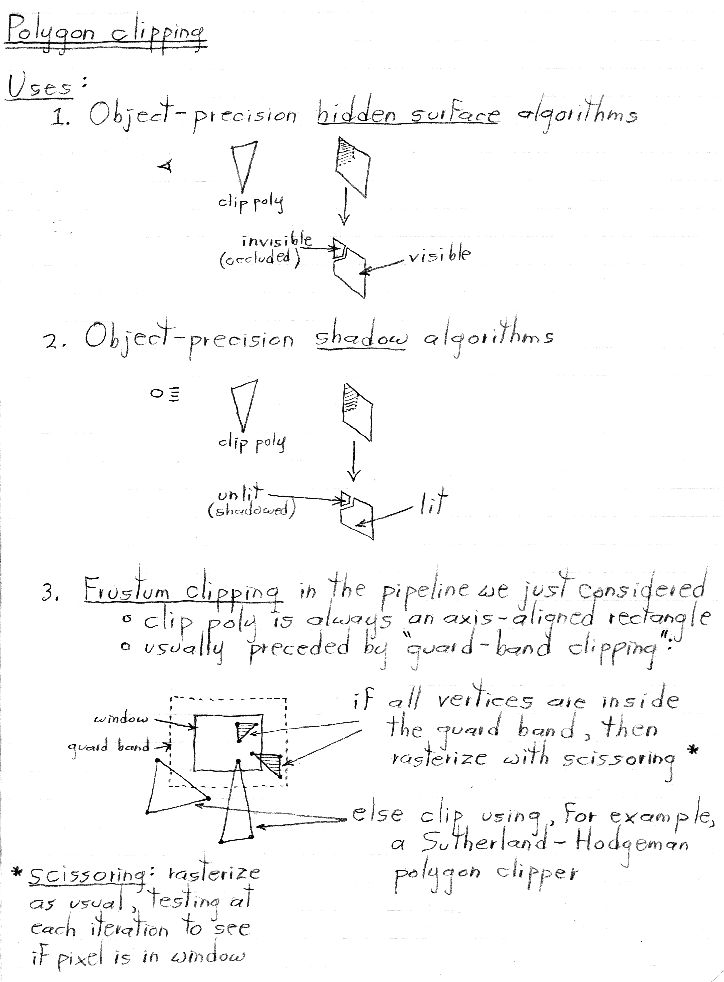 Polygon clipping
Uses:
1. Object-precision hidden surface algorithms
clip poly
invisible
(occluded)
visible
2. Object-precision shadow algorithms
clip poly
unlit
(shadowed)
lit
3. Frustum clipping in the pipeline we just considered
o clip poly is always an axis-aligned rectangle
o usually preceded by "guard-band clipping":
window
guard band
if all vertices are inside
the guard band, then
rasterize with scissoring *
else clip using, for example,
a Sutherland-Hodgeman
polygon clipper
* scissoring: rasterize
as usual, testing at
each iteration to see
if pixel is in window